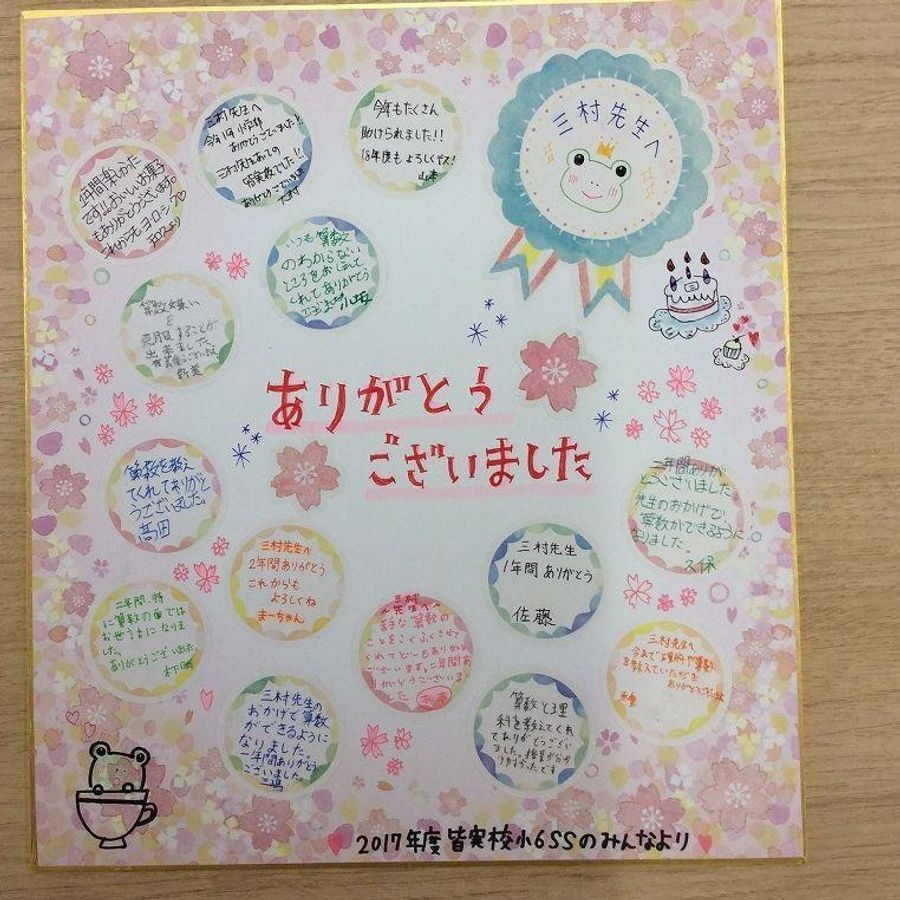 三村先生へ
今年もたくさん
助けられました!!
18年度もよろしくです!
山本
三村先生へ
ありがとうございました
1年間楽しかった
です!!おいしいお菓子
もありがとうございます。
これからもヨロシク♡
いつも算数
のわからない
ところをおしえて
くれてありがとう
算数嫌い
を
克服することが
出来ました
新美
ありがとう
ございました
算数を教え
てくれてありがと
うございました。
髙田
二年間ありが
とうございました。
先生のおかげで
算数ができるように
なりました。
久保
三村先生へ
2年間ありがとう
これからも
よろしくね
まーちゃん
三村先生
1年間ありがとう
佐藤
二年間、特
に算数の面では
お世話になりまし
た。
ありがとうございました。
三村
先生へ
苦手な算数の
ことをこくふくさせて
くれてどーもありがとう
ございます。二年間あ
りがとうございま
した
三村先生へ
今まで理科や算数
を教えていただき
三村先生の
おかげで算数
ができるように
なりました。
1年間ありがとう
ございました。
三嶋
算数と理
科を教えてくれ
てありがとうござい
ました。授業が分か
りやすかったです
2017年度皆実校小6SSのみんなより